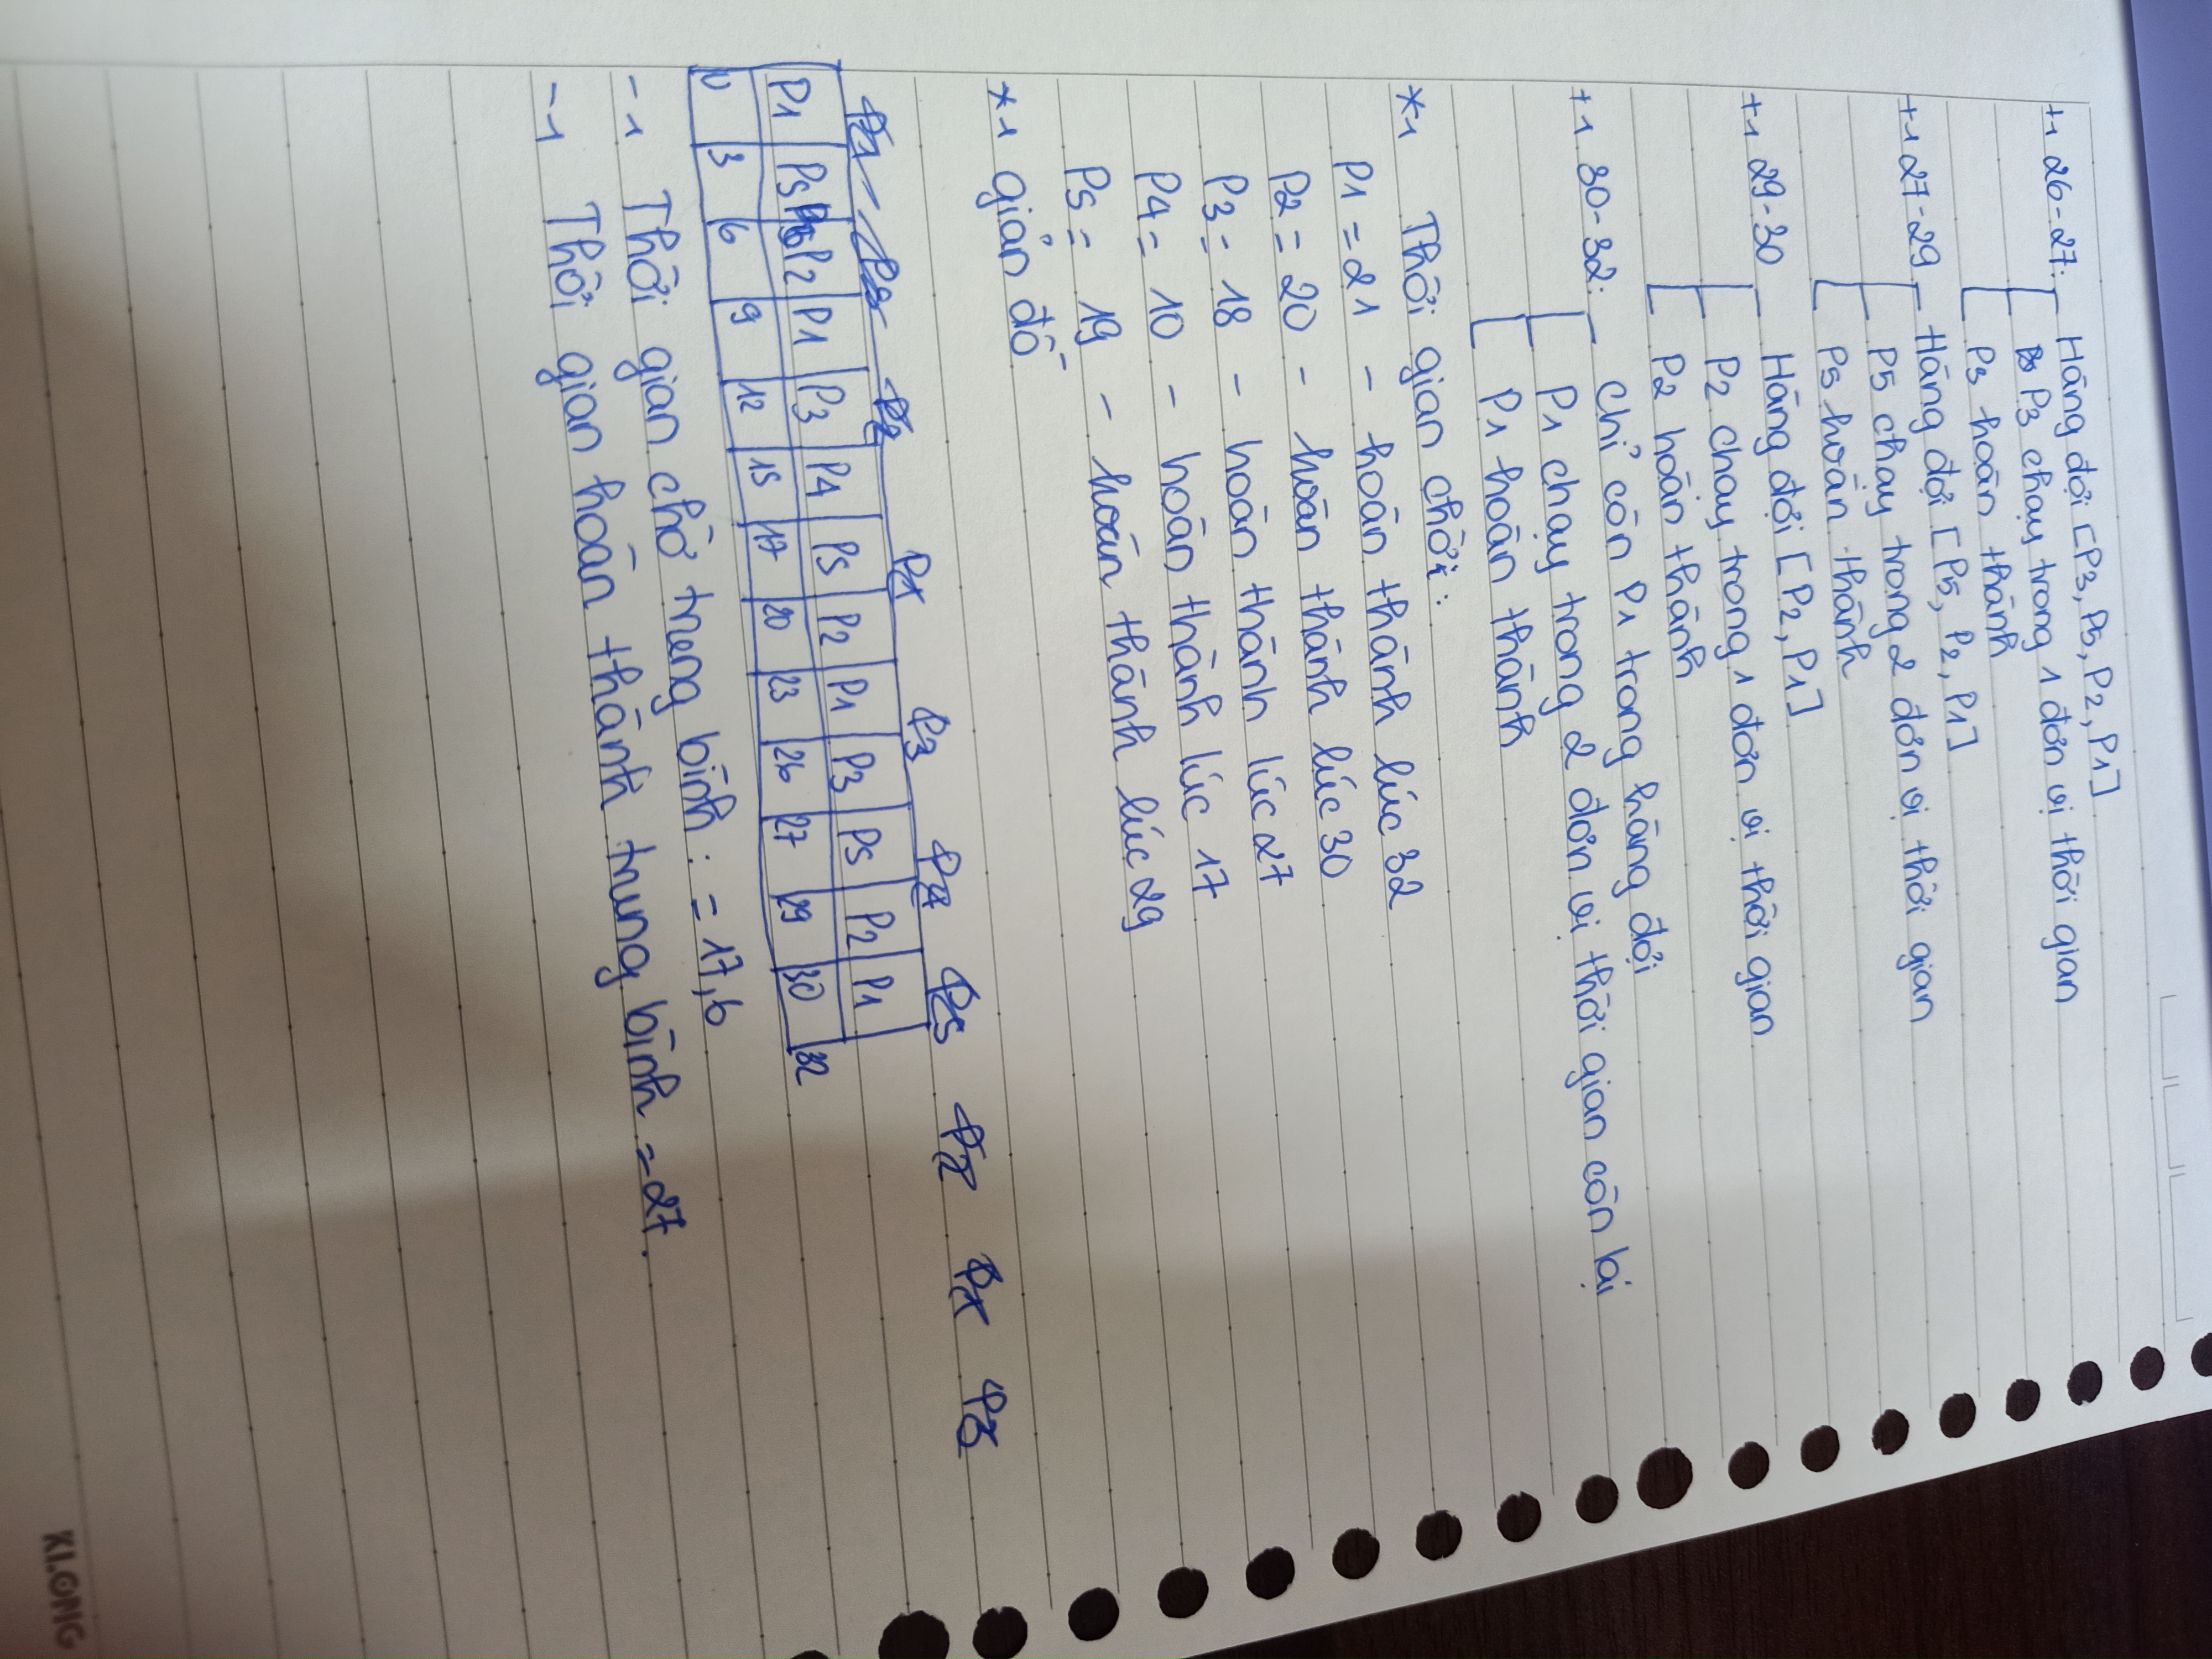 +, 26-27: Hàng đợi [P3, P5, P2, P1]
P3 chạy trong 1 đơn vị thời gian
P3 hoàn thành
+, 27-29 Hàng đợi [P5, P2, P1]
P5 chạy trong 2 đơn vị thời gian
P5 hoàn thành
+, 29-30 Hàng đợi [P2, P1]
P2 chạy trong 1 đơn vị thời gian
P2 hoàn thành
+, 30-32: Chỉ còn P1 trong hàng đợi
P1 chạy trong 2 đơn vị thời gian còn lại
P1 hoàn thành
*, Thời gian chờ:
P1 = 21 - hoàn thành lúc 32
P2 = 20 - hoàn thành lúc 30
P3 = 18 - hoàn thành lúc 27
P4 = 10 - hoàn thành lúc 17
P5 = 19 - hoàn thành lúc 29
*, giản đồ
P1 P5 P2 P1 P3 P4 P5 P2 P1 P3 P5 P2 P1
0 3 6 9 12 15 17 20 23 26 27 29 30 32
-, Thời gian chờ trung bình: = 17,6
-, Thời gian hoàn thành trung bình = 27.
KLONG